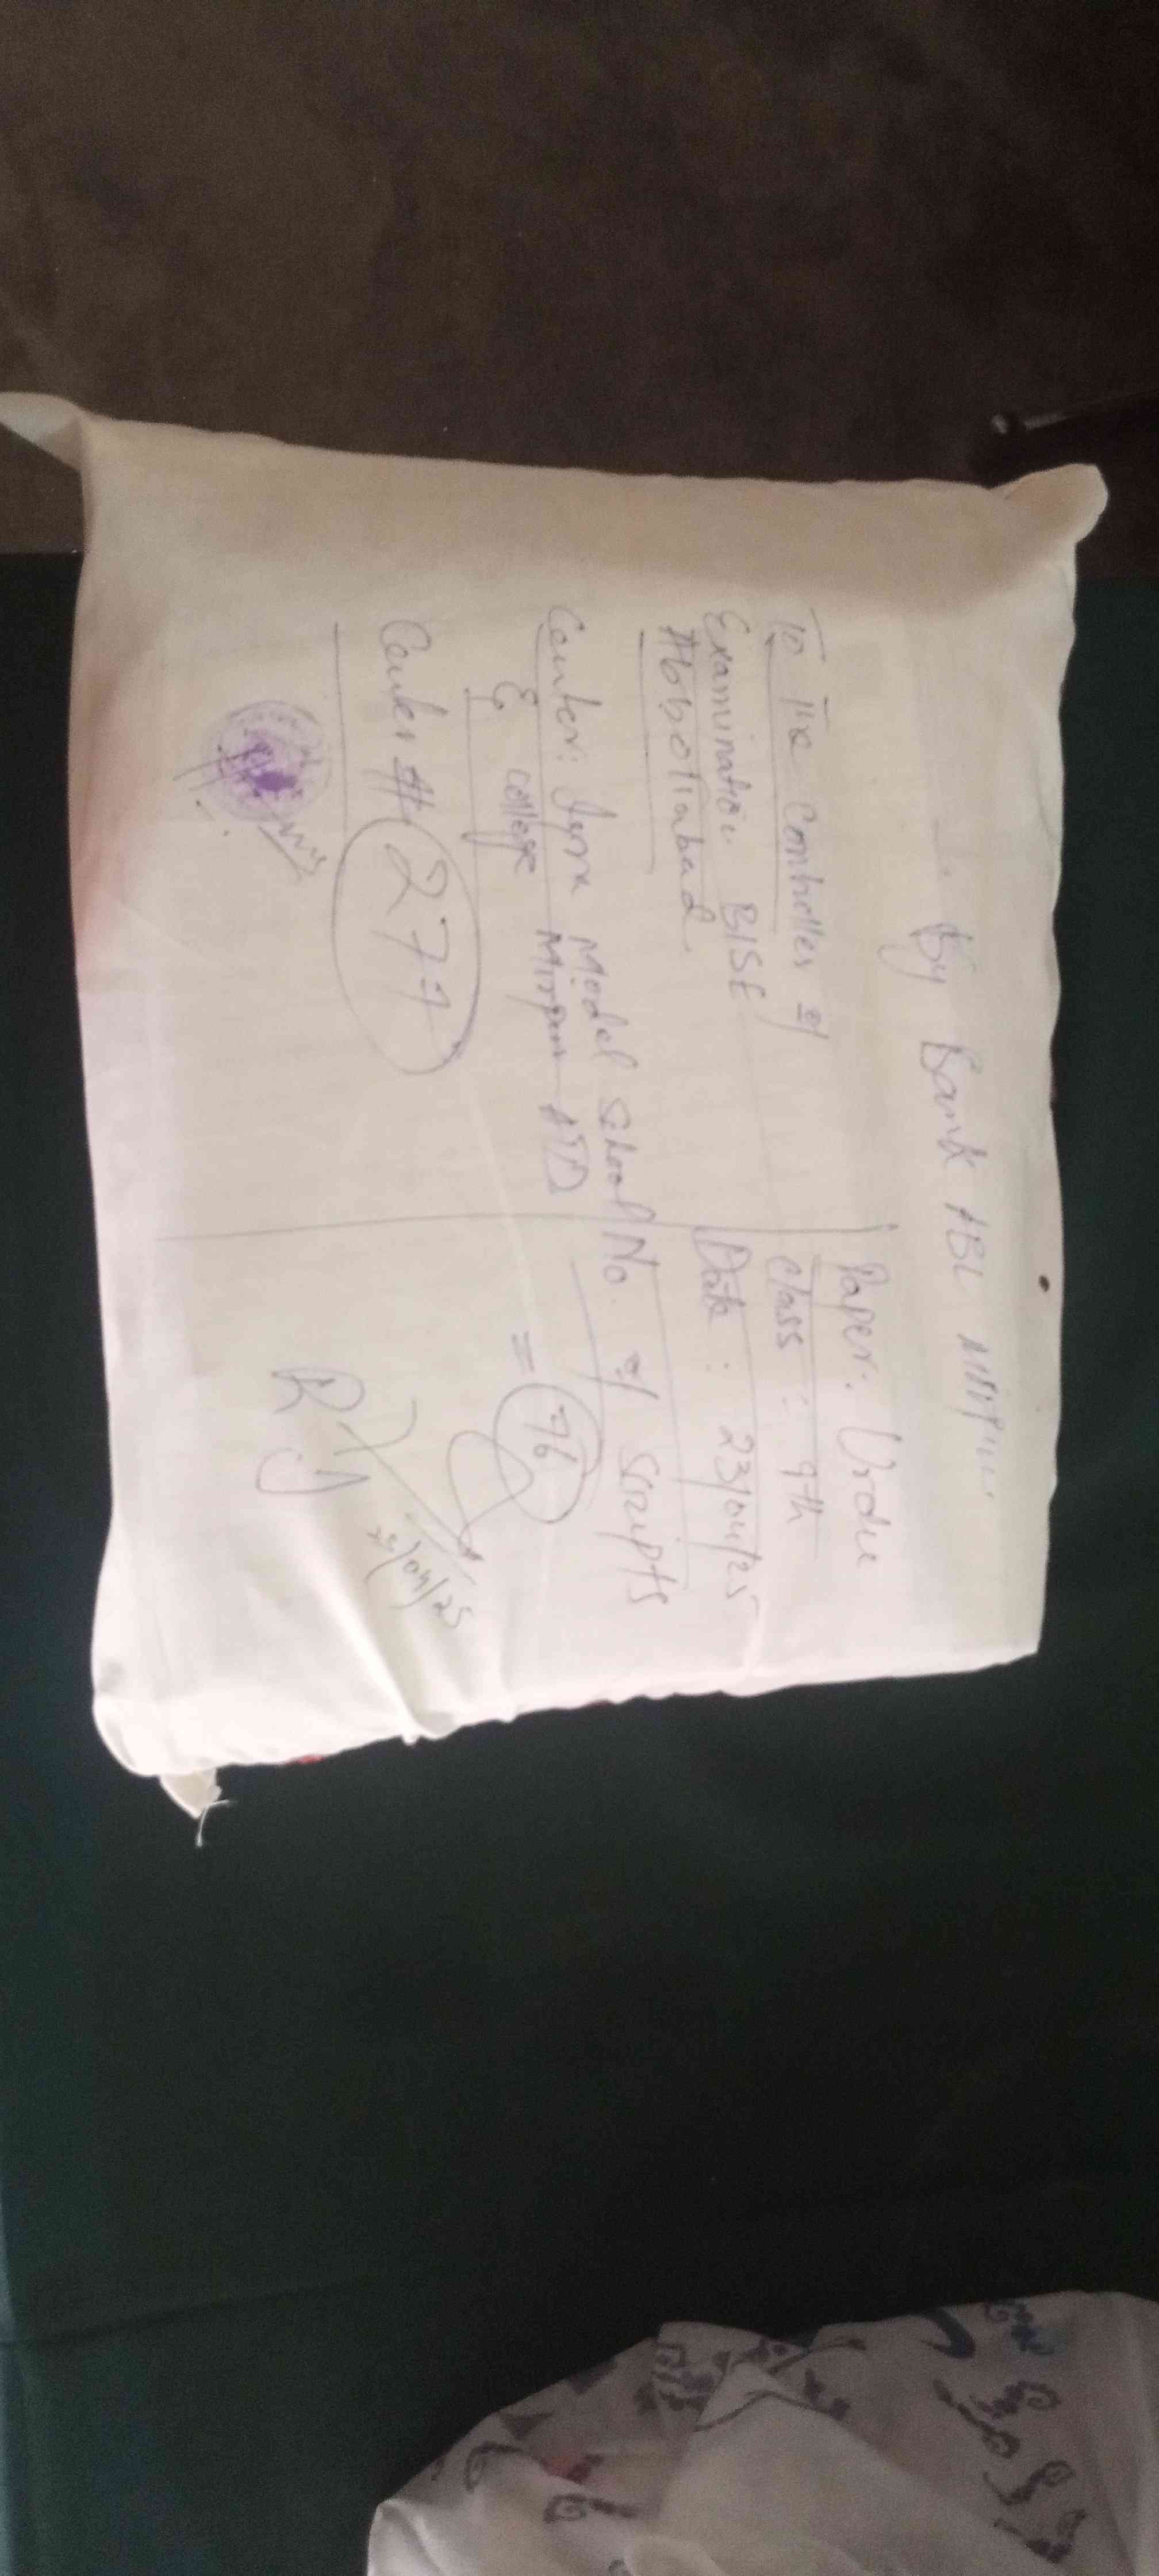 By Bank ABL Mirpur
To The Controller of
Examination BISE
Abbottabad.
Center: Iqra Model School
& College Mirpur ATD
Center # 277
Paper: Urdu
Class: 9th
Date: 23/04/25
No. of Scripts
= 76